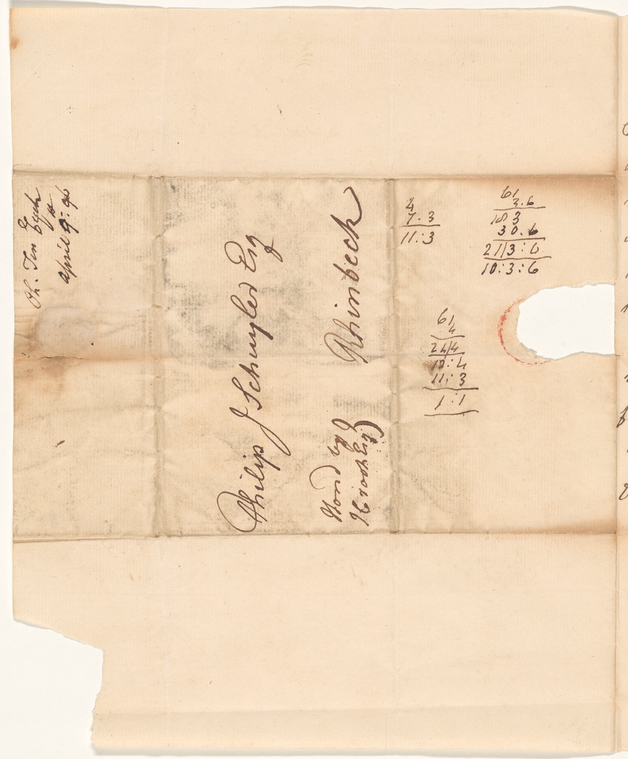 Ph. Ten Eyck
april 9: 96
Philip J Schuyler Esq
Rhinbeck
4
7:3
11:3
61
3.6
183
30.6
211/3:6
10:3:6
61
4
244/4
10:4
11:3
1:1